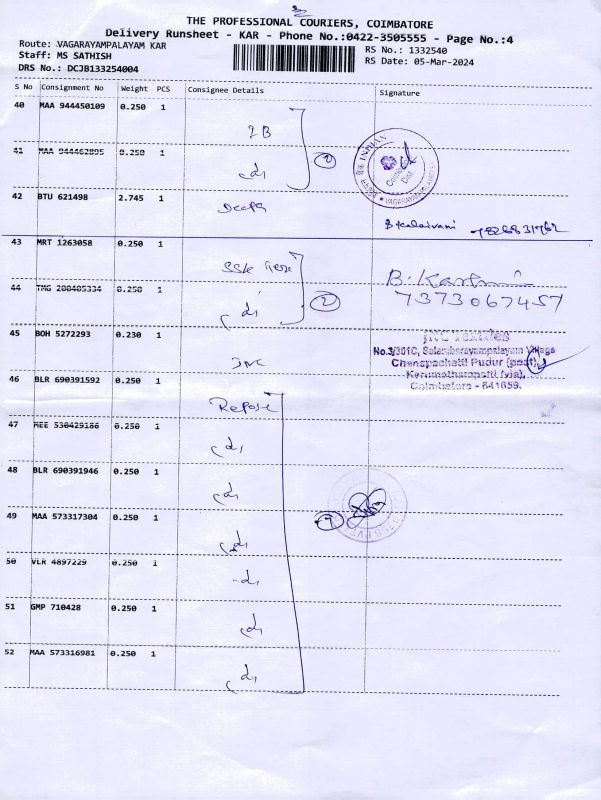 THE PROFESSIONAL COURIERS, COIMBATORE
Delivery Runsheet - KAR - Phone No.:0422-3505555 - Page No.:4
Route: VAGARAYAMPALAYAM KAR
RS No.: 1332540
Staff: MS SATHISH
RS Date: 05-Mar-2024
DRS No.: DCJB133254004
S No Consignment No Weight PCS Consignee Details Signature
40 MAA 944450109 0.250 1
IB
41 MAA 944462895 0.250 1
②
INDIAN
42 BTU 621498 2.745 1 Deepa
B Kalaivani
43 MRT 1263058 0.250 1
44 TMG 200405334 0.250 1
②
B. Karthi
7373067457
45 BOH 5272293 0.230 1 JNC
JNC Textiles
No.3/301C, Selambarayampalayam Village
Chenapachetti Pudur (post),
Karumathampatti (via),
Coimbatore - 641659.
46 BLR 690391592 0.250 1 Repose
47 MEE 530429186 0.250 1
48 BLR 690391946 0.250 1
49 MAA 573317304 0.250 1
50 VLR 4897229 0.250 1
51 GMP 710428 0.250 1
52 MAA 573316981 0.250 1